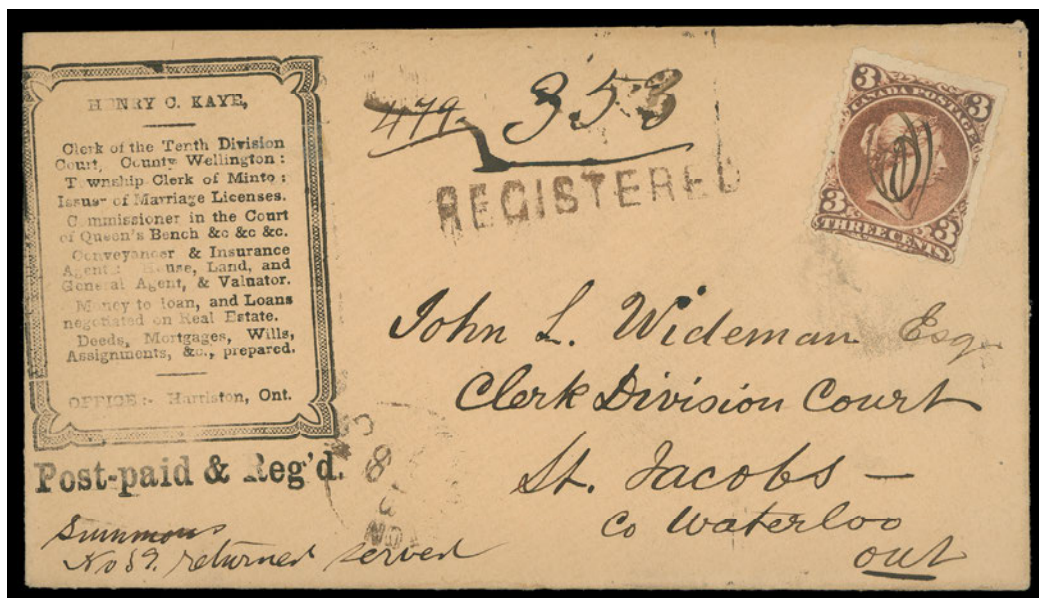 HENRY C. KAYE,
Clerk of the Tenth Division
Court, County Wellington:
Township Clerk of Minto:
Issuer of Marriage Licenses.
Commissioner in the Court
of Queen's Bench &c &c &c.
Conveyancer & Insurance
Agent: House, Land, and
General Agent, & Valuator.
Money to loan, and Loans
negotiated on Real Estate.
Deeds, Mortgages, Wills,
Assignments, &c., prepared.
OFFICE:- Harriston, Ont.
Post-paid & Reg'd.
Summons
No 59. returned served
479
353
REGISTERED
3 3
CANADA POSTAGE
3 3
THREE CENTS
John L. Wideman Esq
Clerk Division Court
St. Jacobs —
Co Waterloo
Ont